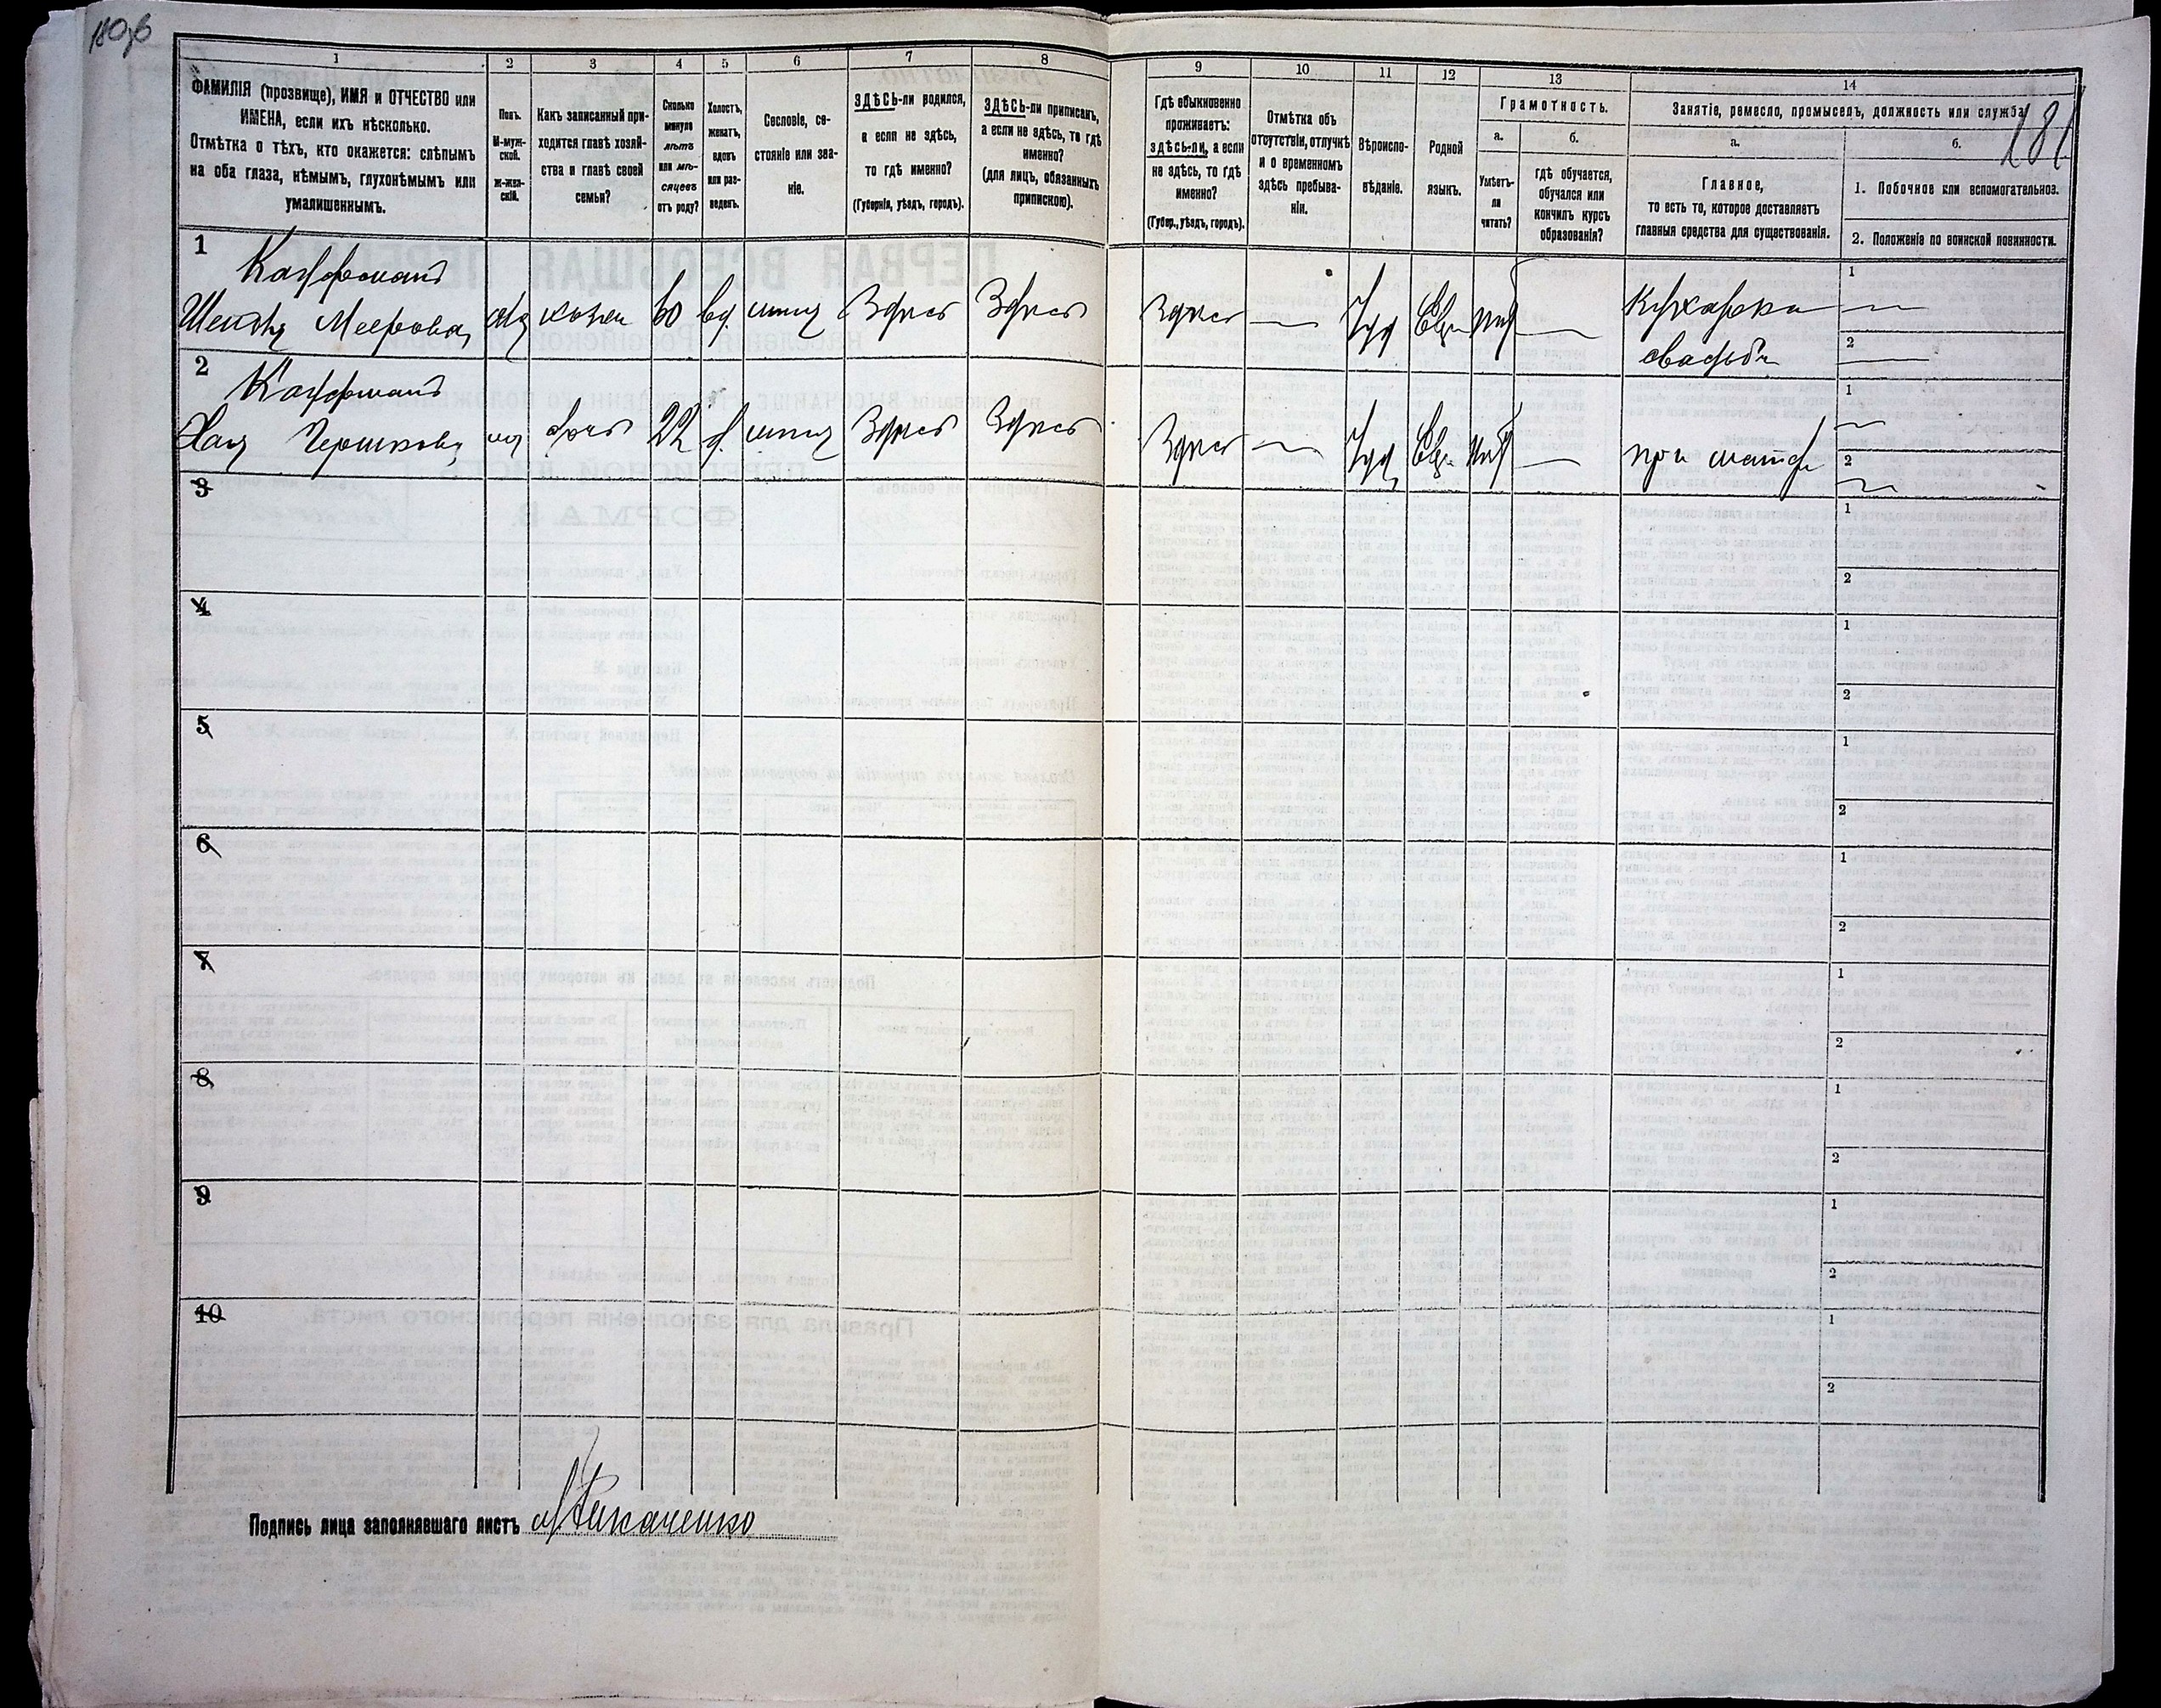 180об
181
1
2
3
4
5
6
7
8
ФАМИЛІЯ (прозвище), ИМЯ и ОТЧЕСТВО или
ИМЕНА, если ихъ нѣсколько.
Отмѣтка о тѣхъ, кто окажется: слѣпымъ
на оба глаза, нѣмымъ, глухонѣмымъ или
умалишеннымъ.
Полъ.
М-муж-
ской.
ж-жен-
скій.
Какъ записанный при-
ходится главѣ хозяй-
ства и главѣ своей
семьи?
Сколько
минуло
лѣтъ
или мѣ-
сяцевъ
отъ роду?
Холостъ,
женатъ,
вдовъ
или раз-
веденъ.
Сословіе, со-
стояніе или зва-
ніе.
ЗДѢСЬ-ли родился,
а если не здѣсь,
то гдѣ именно?
(Губернія, уѣздъ, городъ).
ЗДѢСЬ-ли приписанъ,
а если не здѣсь, то гдѣ
именно?
(для лицъ, обязанныхъ
припискою).
9
10
11
12
13
14
Гдѣ обыкновенно
проживаетъ:
здѣсь-ли, а если
не здѣсь, то гдѣ
именно?
(Губер., уѣздъ, городъ).
Отмѣтка объ
отсутствіи, отлучкѣ
и о временномъ
здѣсь пребыва-
ніи.
Вѣроиспо-
вѣданіе.
Родной
языкъ.
Грамотность.
а.
б.
Умѣетъ-
ли
читать?
гдѣ обучается,
обучался или
кончилъ курсъ
образованія?
Занятіе, ремесло, промыселъ, должность или служба
а.
б.
Главное,
то есть то, которое доставляетъ
главныя средства для существованія.
1. Побочное или вспомогательное.
2. Положеніе по воинской повинности.
1
Кауфманъ
Меерова 60 вд. Здѣсь Здѣсь Здѣсь — Іуд Евр нѣтъ — Кухарка —
свадьбы
2
Кауфманъ
Хая Гершкова дочь 22 д. Здѣсь Здѣсь Здѣсь — Іуд Евр нѣтъ — при матери
3
4
5
6
7
8
9
10
Подпись лица заполнявшаго листъ